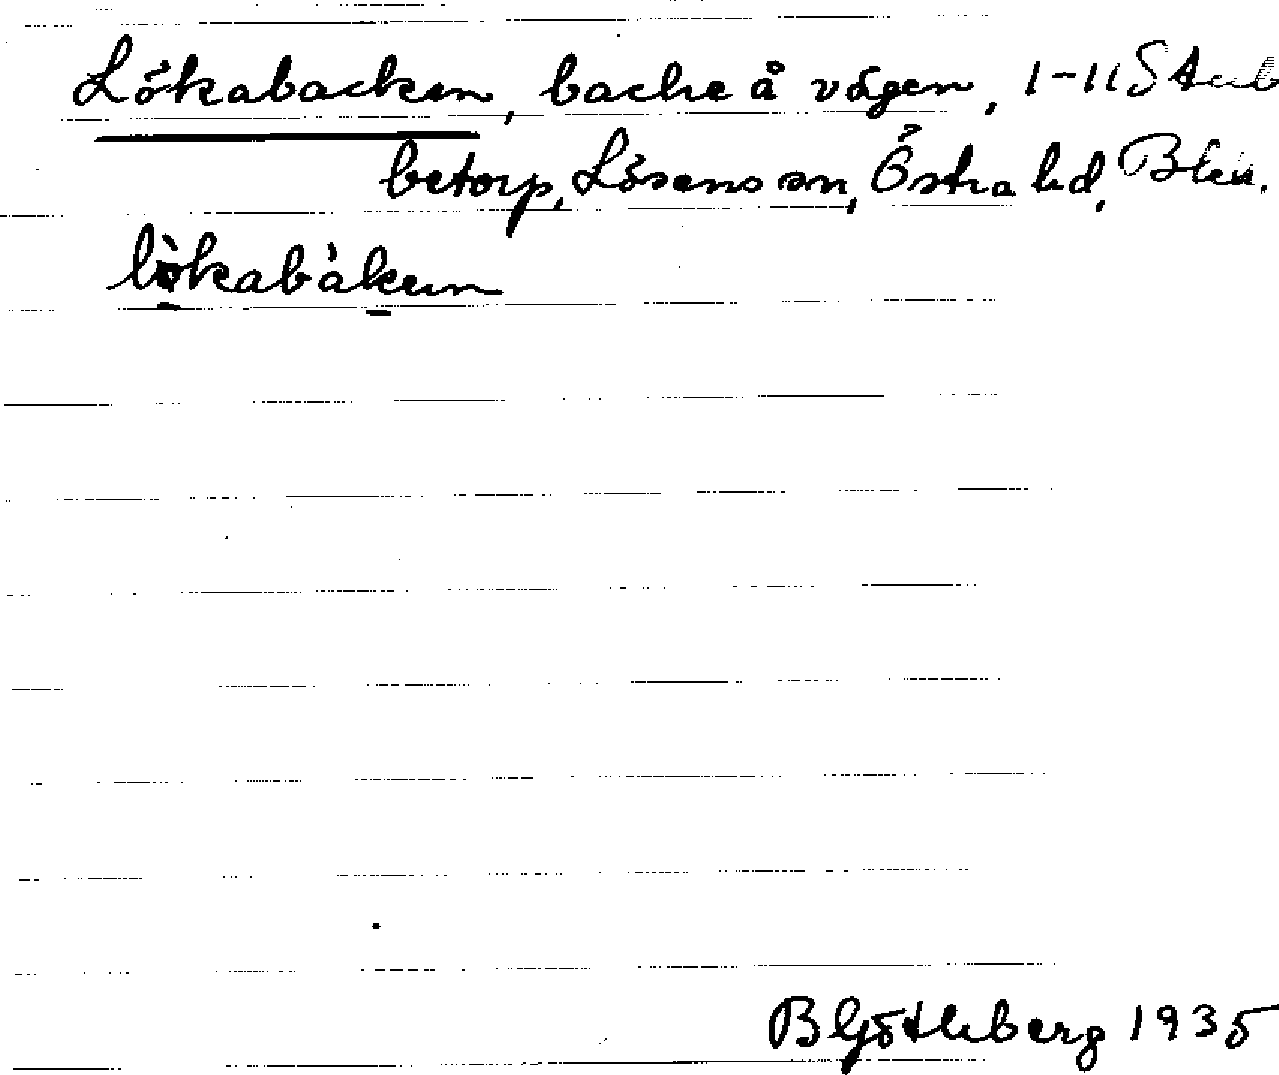 Lökabacken, backe å vägen, 1-11 Stub
betorp, Lösens sn, Östra hd, Blek.
lökabàken
B Götleberg 1935